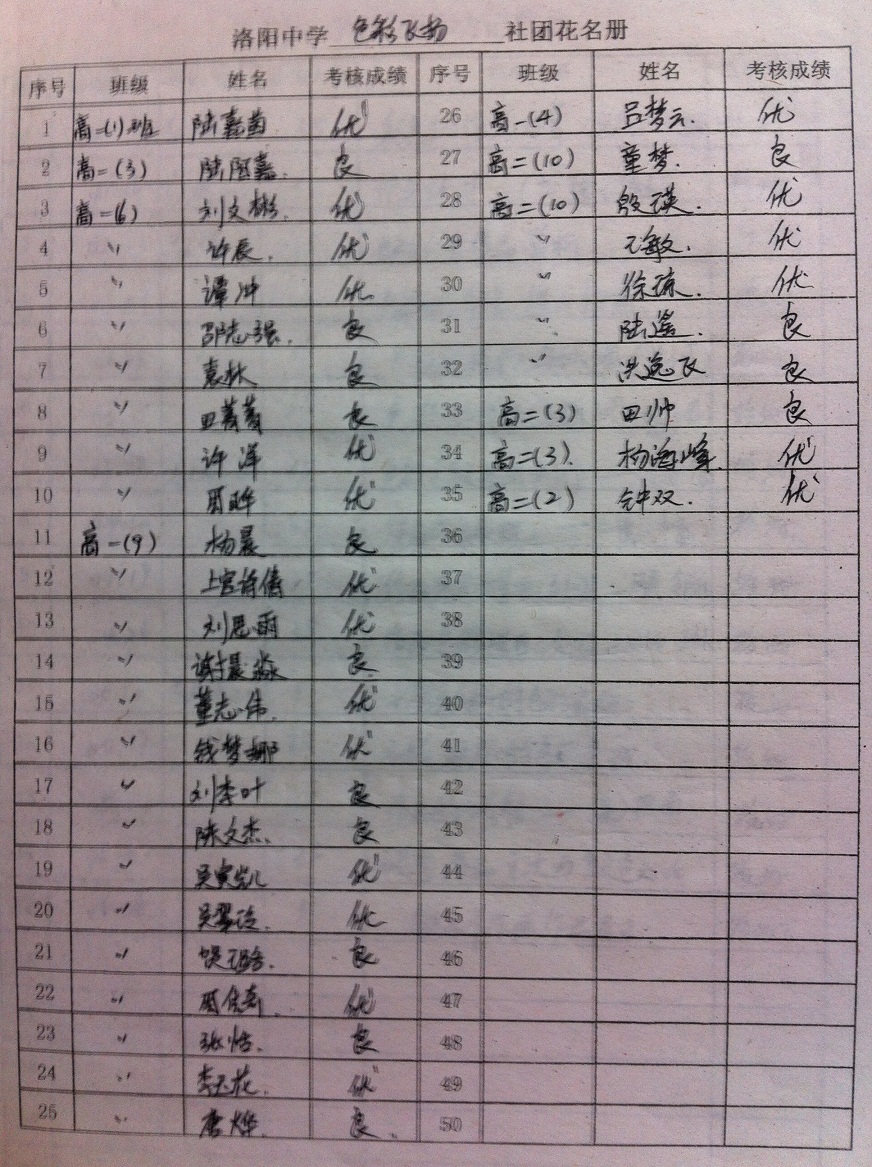 洛阳中学 色彩飞扬 社团花名册
序号 班级 姓名 考核成绩 序号 班级 姓名 考核成绩
1 高一(1)班 陆嘉茵 优 26 高一(4) 吕梦云. 优
2 高一(3) 陆 嘉. 良 27 高二(10) 童梦. 良
3 高一(6) 刘文彬. 优 28 高二(10) 殷瑛. 优
4 〃 许辰. 优 29 〃 王敏. 优
5 〃 谭冲 优 30 〃 徐琼. 优
6 〃 邵志强. 良 31 〃 陆遥. 良
7 〃 袁秋 良 32 〃 洪逸飞 良
8 〃 田菁菁 良 33 高二(3) 田帅 良
9 〃 许洋 优 34 高二(3). 杨海峰. 优
10 〃 周晔 优 35 高二(2) 钟双. 优
11 高一(9) 杨晨 良 36
12 〃 上官诗倩 优 37
13 〃 刘思雨 优 38
14 〃 谢晨淼 良 39
15 〃 董志伟. 优 40
16 〃 钱梦娜 优 41
17 〃 刘李叶 良 42
18 〃 陈文杰. 良 43
19 〃 吴寅凯 优 44
20 〃 吴 优 45
21 〃 良 46
22 〃 周佳莉. 优 47
23 〃 张恬. 良 48
24 〃 李玉花. 优 49
25 〃 唐烨. 良. 50